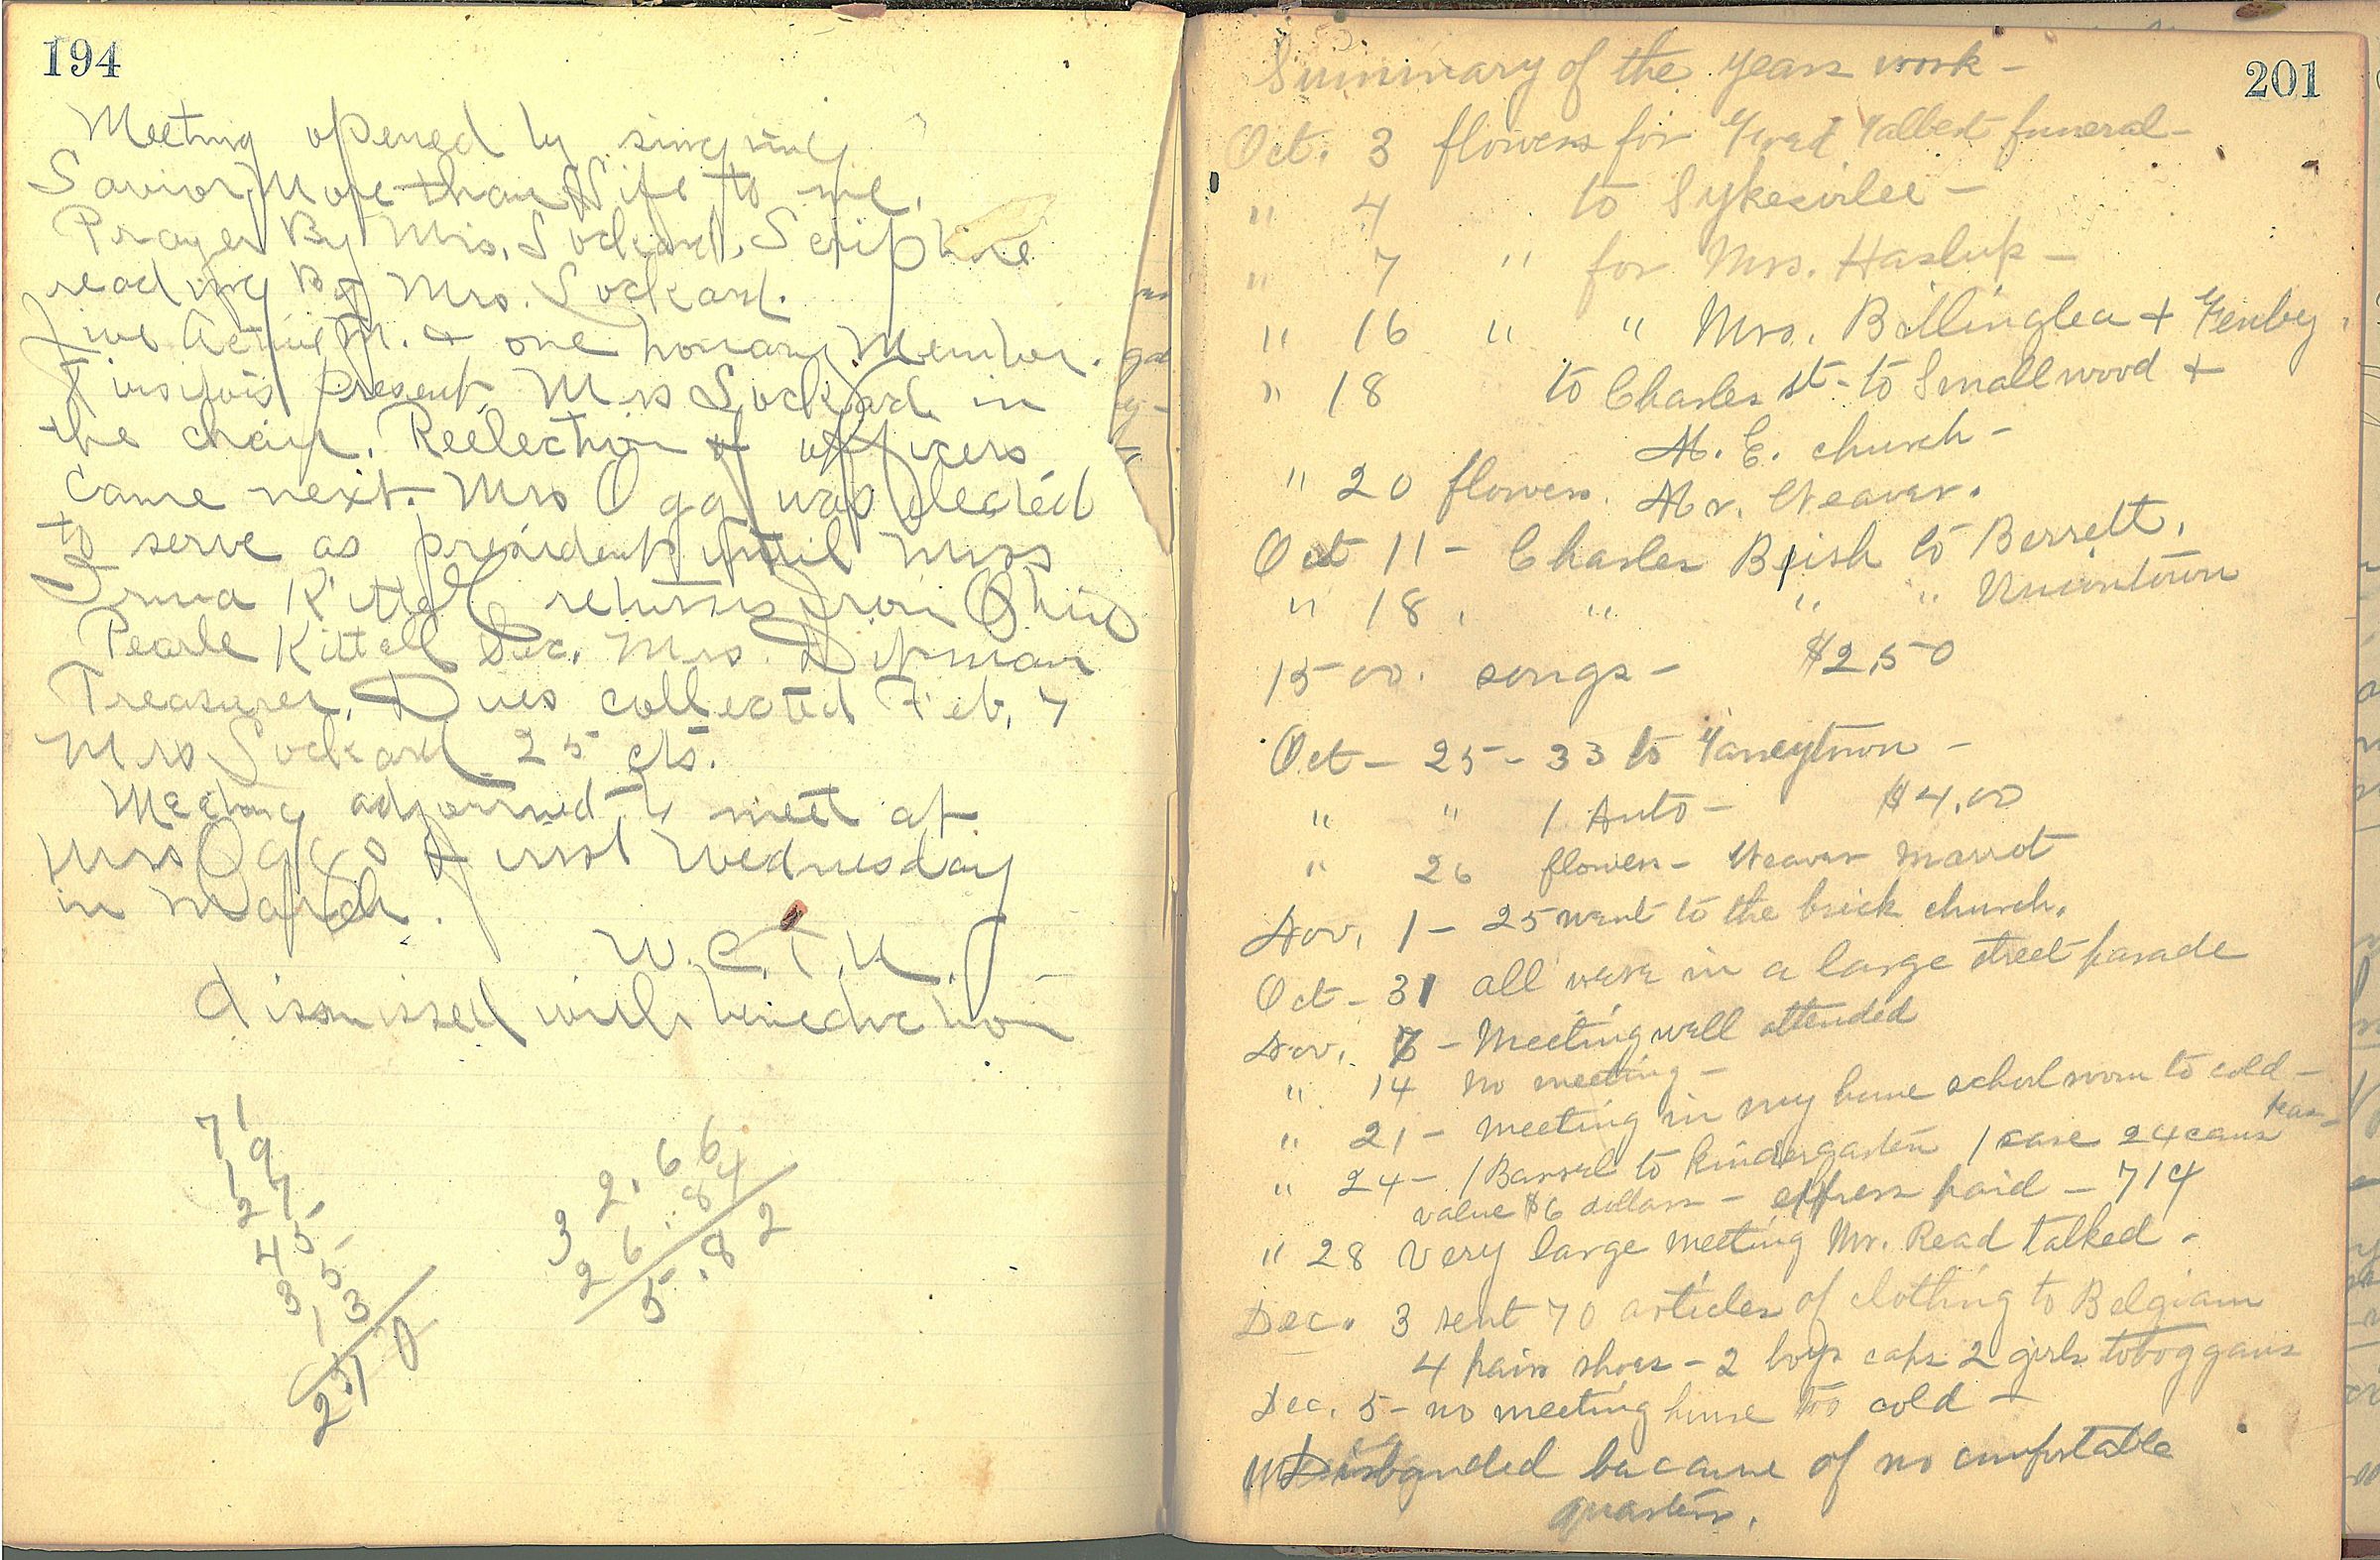 194
Meeting opened by singing
Savior, More than Life to me.
Prayer By Mrs. Lockard, Scripture
reading By Mrs. Lockard.
five Active M. & one honary Member.
visitors present Mrs Lockard in
the chair. Reelection of officers
came next. Mrs Ogg was elected
to serve as president until Miss
Irma Kittell returns from Ohio
Pearle Kittell Sec. Mrs. Ditman
Treasurer. Dues collected Feb. 7
Mrs Lockard 25 cts.
Meeting adjourned to meet at
Mrs Oggs first Wednesday
in March.
W.C.T.U.
dismissed with benediction
2.66
3 .84
26
5.82
201
Summary of the years work -
Oct. 3 flowers for Fred Talbert funeral -
" 4 to Sykesville -
" 7 " for Mrs. Haslup -
" 16 " " Mrs. Billinglea + Fenby.
" 18 to Charles St. to Smallwood +
M. E. church -
" 20 flowers. Mr. Weaver.
Oct 11 - Charles Bish to Berrett.
" 18. " " " Uniontown
1500. songs - $2.50
Oct - 25 - 33 to Taneytown -
" " 1 Auto - $4.00
" 26 flowers - Weaver Marriot
Nov. 1 - 25 went to the brick church.
Oct - 31 all were in a large street parade
Nov. 7 - Meeting well attended
" 14 no meeting -
" 21 - meeting in my home school room to cold -
" 24 - 1 Barrel to Kindergarten 1 case 24 cans peas -
value $6 dollars - express paid - 71¢
" 28 Very large meeting Mr. Read talked -
Dec. 3 sent 70 articles of clothing to Belgiam
4 pairs shoes - 2 boys caps 2 girls toboggans
Dec. 5 - no meeting house too cold -
Disbanded because of no comfortable
quarters.